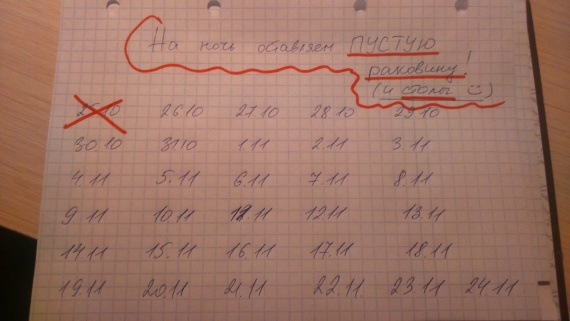 На ночь оставляем ПУСТУЮ
раковину!
(и столы ☺)
25.10 26.10 27.10 28.10 29.10
30.10 31.10 1.11 2.11 3.11
4.11 5.11 6.11 7.11 8.11
9.11 10.11 11.11 12.11 13.11
14.11 15.11 16.11 17.11 18.11
19.11 20.11 21.11 22.11 23.11 24.11